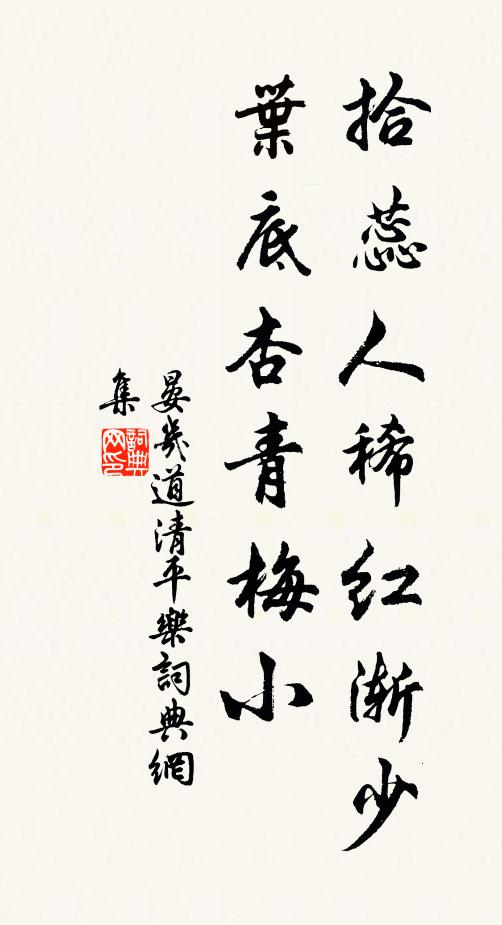 拾蕊人稀红渐少
葉底杏青梅小
晏幾道清平樂詞典網
集
詞典网印